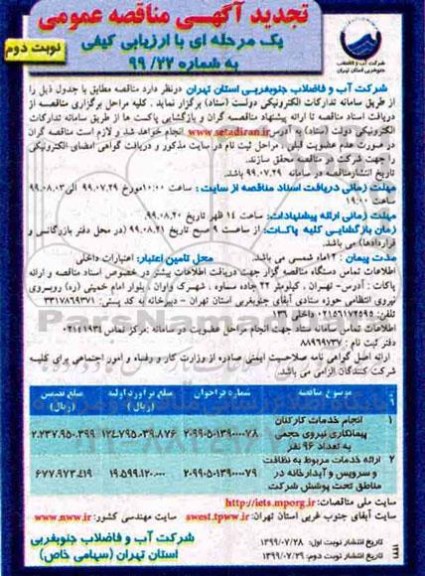 تجدید آگهی مناقصه عمومی
یک مرحله ای با ارزیابی کیفی
به شماره ۹۹/۲۷
نوبت دوم
شرکت آب و فاضلاب جنوبغربی
استان تهران
شرکت آب و فاضلاب جنوبغربی استان تهران درنظر دارد مناقصه مطابق با جدول ذیل را
از طریق سامانه تدارکات الکترونیکی دولت (ستاد) برگزار نماید. کلیه مراحل برگزاری مناقصه از
دریافت اسناد مناقصه تا ارائه پیشنهاد مناقصه گران و بازگشایی پاکت ها از طریق سامانه تدارکات
الکترونیکی دولت (ستاد) به آدرس www.setadiran.ir انجام خواهد شد و لازم است مناقصه گران
در صورت عدم عضویت قبلی، مراحل ثبت نام در سایت مذکور و دریافت گواهی امضای الکترونیکی
را جهت شرکت در مناقصه محقق سازند.
تاریخ انتشار مناقصه در سامانه ۹۹.۰۷.۲۹ باشد
مهلت زمانی دریافت اسناد مناقصه از سایت: ساعت ۱۰:۰۰ مورخ ۹۹.۰۷.۲۹ الی ۹۹.۰۸.۰۳
ساعت ۱۹:۰۰
مهلت زمانی ارائه پیشنهادات: ساعت ۱۴ ظهر تاریخ ۹۹.۰۸.۲۰
زمان بازگشایی کلیه پاکات: از ساعت ۹ صبح تاریخ ۹۹.۰۸.۲۱ (در محل دفتر بازرگانی و
قراردادها) می باشد.
مدت پیمان: ۱۲ماه شمسی می باشد. محل تامین اعتبار: اعتبارات داخلی
اطلاعات تماس دستگاه مناقصه گزار جهت دریافت اطلاعات بیشتر در خصوص اسناد مناقصه و ارائه
پاکات: آدرس- تهران، کیلومتر ۲۲ جاده ساوه، شهرک واوان، بلوار امام خمینی (ره) روبروی
نیروی انتظامی حوزه ستادی آبفای جنوبغربی استان تهران - دبیرخانه به کد پستی: ۳۳۱۷۸۶۹۳۷۱
تلفن: ۰۲۱۵۶۱۷۴۵۹۵ داخلی ۱۳۶
اطلاعات تماس سامانه ستاد جهت انجام مراحل عضویت در سامانه: مرکز تماس ۰۲۱۴۱۹۳۴
دفتر ثبت نام: ۸۸۹۶۹۷۳۷
ارائه اصل گواهی نامه صلاحیت ایمنی صادره از وزارت کار و رفاه و امور اجتماعی برای کلیه
شرکت کنندگان الزامی می باشد.
موضوع مناقصه شماره فراخوان مبلغ برآورد اولیه (ریال) مبلغ تضمین (ریال)
۱ انجام خدمات کارکنان پیمانکاری نیروی حجمی به تعداد ۹۶ نفر ۲۰۹۹۰۵۰۱۳۹۰۰۰۰۷۸ ۱۲۴.۷۹۵.۰۳۹.۸۷۶ ۲.۲۳۷.۹۵۰.۳۹۹
۲ ارائه خدمات مربوط به نظافت و سرویس و آبدارخانه در مناطق تحت پوشش شرکت ۲۰۹۹۰۵۰۱۳۹۰۰۰۰۷۹ ۱۹.۵۹۹.۱۲۰.۰۰۰ ۶۷۷.۹۷۳.۴۱۹
سایت ملی مناقصات: http://iets.mporg.ir
سایت آبفای جنوب غربی استان تهران: awest.tpww.ir سایت مهندسی کشور: www.nww.ir
تاریخ انتشار نوبت اول: ۱۳۹۹/۰۷/۲۸
تاریخ انتشار نوبت دوم: ۱۳۹۹/۰۷/۲۹
شرکت آب و فاضلاب جنوبغربی
استان تهران (سهامی خاص)